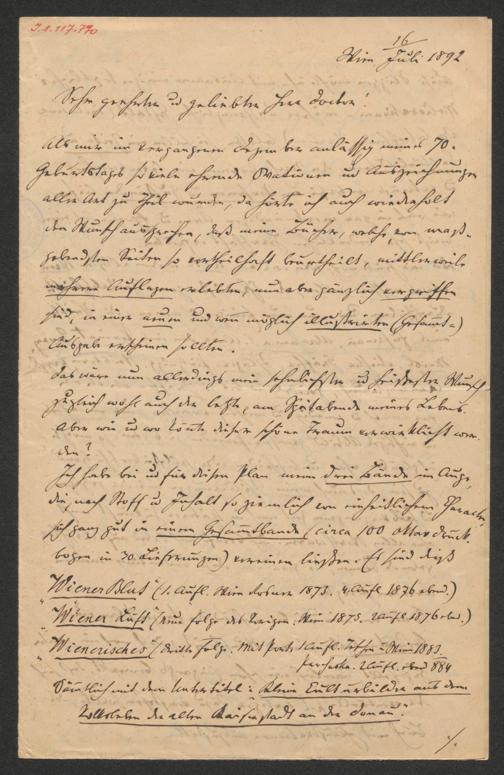 I.N. 117.790
Wien 16/Juli 1892
Sehr geehrter u geliebter Herr Doctor!
Als mir im vergangenen Dezember anläßig meines 70.
Geburtstages so viele ehrende Ovationen und Auszeichnungen
aller Art zu Theil wurden, da hörte ich auch wiederholt
den Wunsch aussprechen, daß meine Bücher, welche, von maß-
gebendsten Seiten so vortheilhaft beurtheilt, mittlerweile
mehrere Auflagen erlebten, nun aber gänzlich vergriffen
sind, in einer neuen und wenn möglich illustrirten (Gesamt-)
Ausgabe erscheinen sollten.
Das wäre nun allerdings mein sehnlichster u heißester Wunsch,
zugleich wohl auch der letzte, am Spätabende meines Lebens.
Aber wie u wo könnte dieser schöne Traum verwirklicht wer-
den?
Ich habe bei u für diesen Plan meine drei Bände im Auge,
die, nach Stoff u Inhalt so ziemlich von einheitlichem Character,
sich ganz gut in einem Gesammtbande (circa 100 Oktav druck-
bogen in 30 Lieferungen) vereinen ließen. Es sind dieß
"Wiener Blut" (1. Aufl. Wien Rosner 1873. 4 Aufl 1876 ebend.)
"Wiener Luft" (Neue Folge des Vorigen. Wien 1875. 2 Aufl 1876 ebd.)
"Wienerisches" (Dritte Folge. Mit Portr. 1 Aufl. Teschen u Wien 1883.
2 Aufl. ebend 884
Sämtlich mit dem Untertitel: Kleine Culturbilder aus dem
Volksleben der alten Kaiserstadt an der Donau".
./.